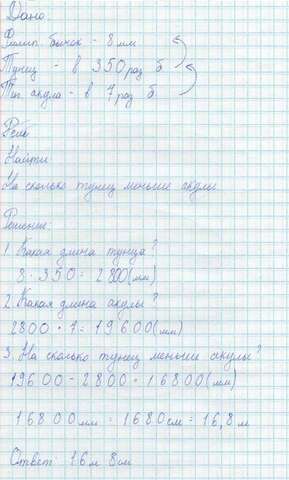 Дано:
Филип. бычок - 8 мм
Тунец - в 350 раз б.
Тиг. акула - в 7 раз б.
Найти:
На сколько тунец меньше акулы
Решение:
1. Какая длина тунца?
8 · 350 = 2800 (мм)
2. Какая длина акулы?
2800 · 7 = 19600 (мм)
3. На сколько тунец меньше акулы?
19600 - 2800 = 16800 (мм)
16800 мм = 1680 см = 16,8 м
Ответ: 16 м 8 см